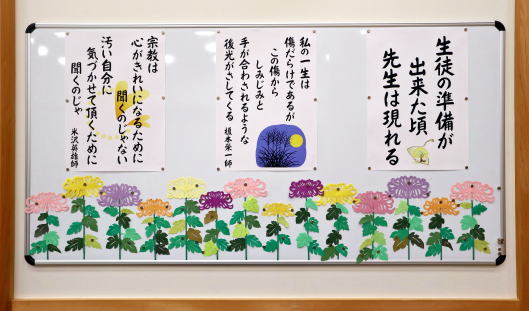 生徒の準備が
出来た頃、
先生は現れる
私の一生は
傷だらけであるが
この傷から
しみじみと
手が合わされるような
後光がさしてくる 榎本栄一師
宗教は
心がきれいになるために
聞くのじゃない
汚い自分に
気づかせて頂くために
聞くのじゃ
米沢英雄師